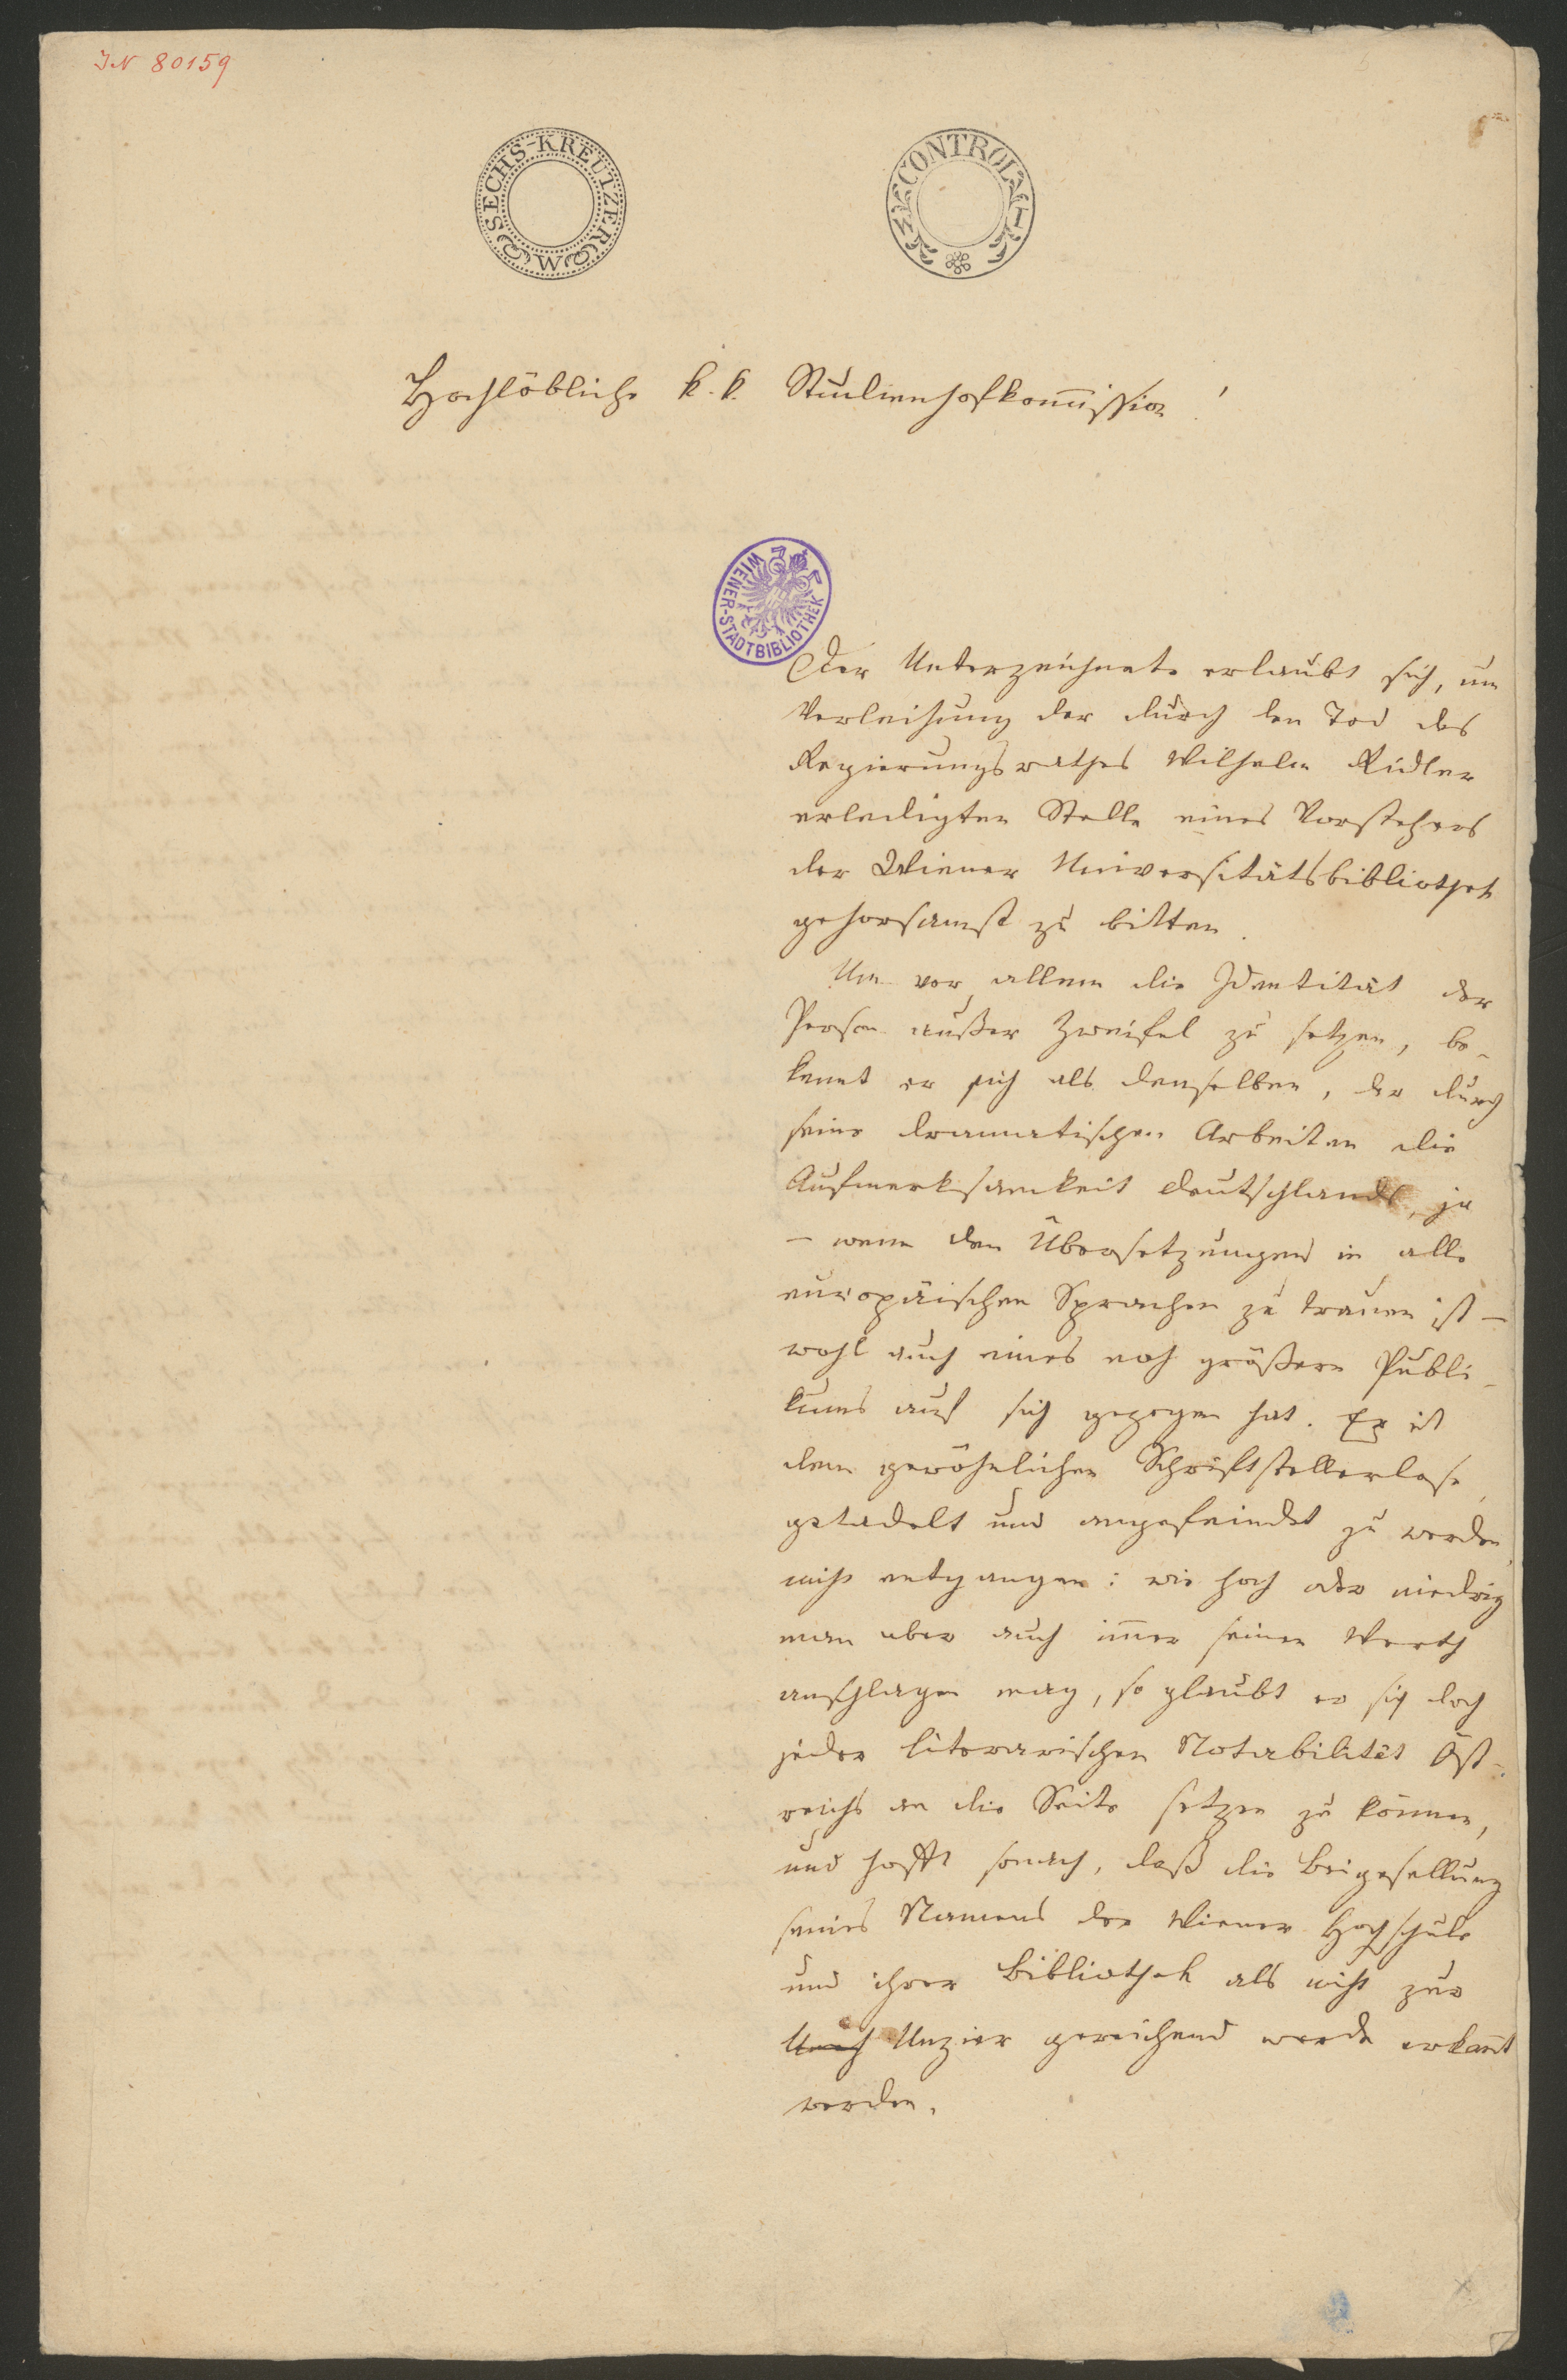 IN 80159
SECHS-KREUTZER
C M
CONTROL
Hochlöbliche k. k. Studienhofkom̅ission!
WIENER-STADTBIBLIOTHEK
Der Unterzeichnete erlaubt sich, um
Verleihung der durch den Tod des
Regierungsrathes Wilhelm Ridler
erledigten Stelle eines Vorstehers
der Wiener Universitätsbibliothek
gehorsamst zu bitten.
Um vor allem die Identität der
Person außer Zweifel zu setzen, be-
kennt er sich als denselben, der durch
seine dramatischen Arbeiten die
Aufmerksamkeit Deutschlands, ja
– wenn den Übersetzungen in alle
europäischen Sprachen zu trauen ist –
wohl auch eines noch größern Publi-
kums auf sich gezogen hat. Er ist
dem gewöhnlichen Schriftstellerlose,
getadelt und angefeindet zu werden,
nicht entgangen: wie hoch oder niedrig
man aber auch im̅er seinen Werth
anschlagen mag, so glaubt er sich doch
jeder literarischen Notabilität Öst-
reichs an die Seite setzen zu können,
und hofft sonach, daß die Beigesellung
seines Namens der Wiener Hochschule
und ihrer Bibliothek als nicht zur
Unzier gereichend werde erkan̅t
werden.